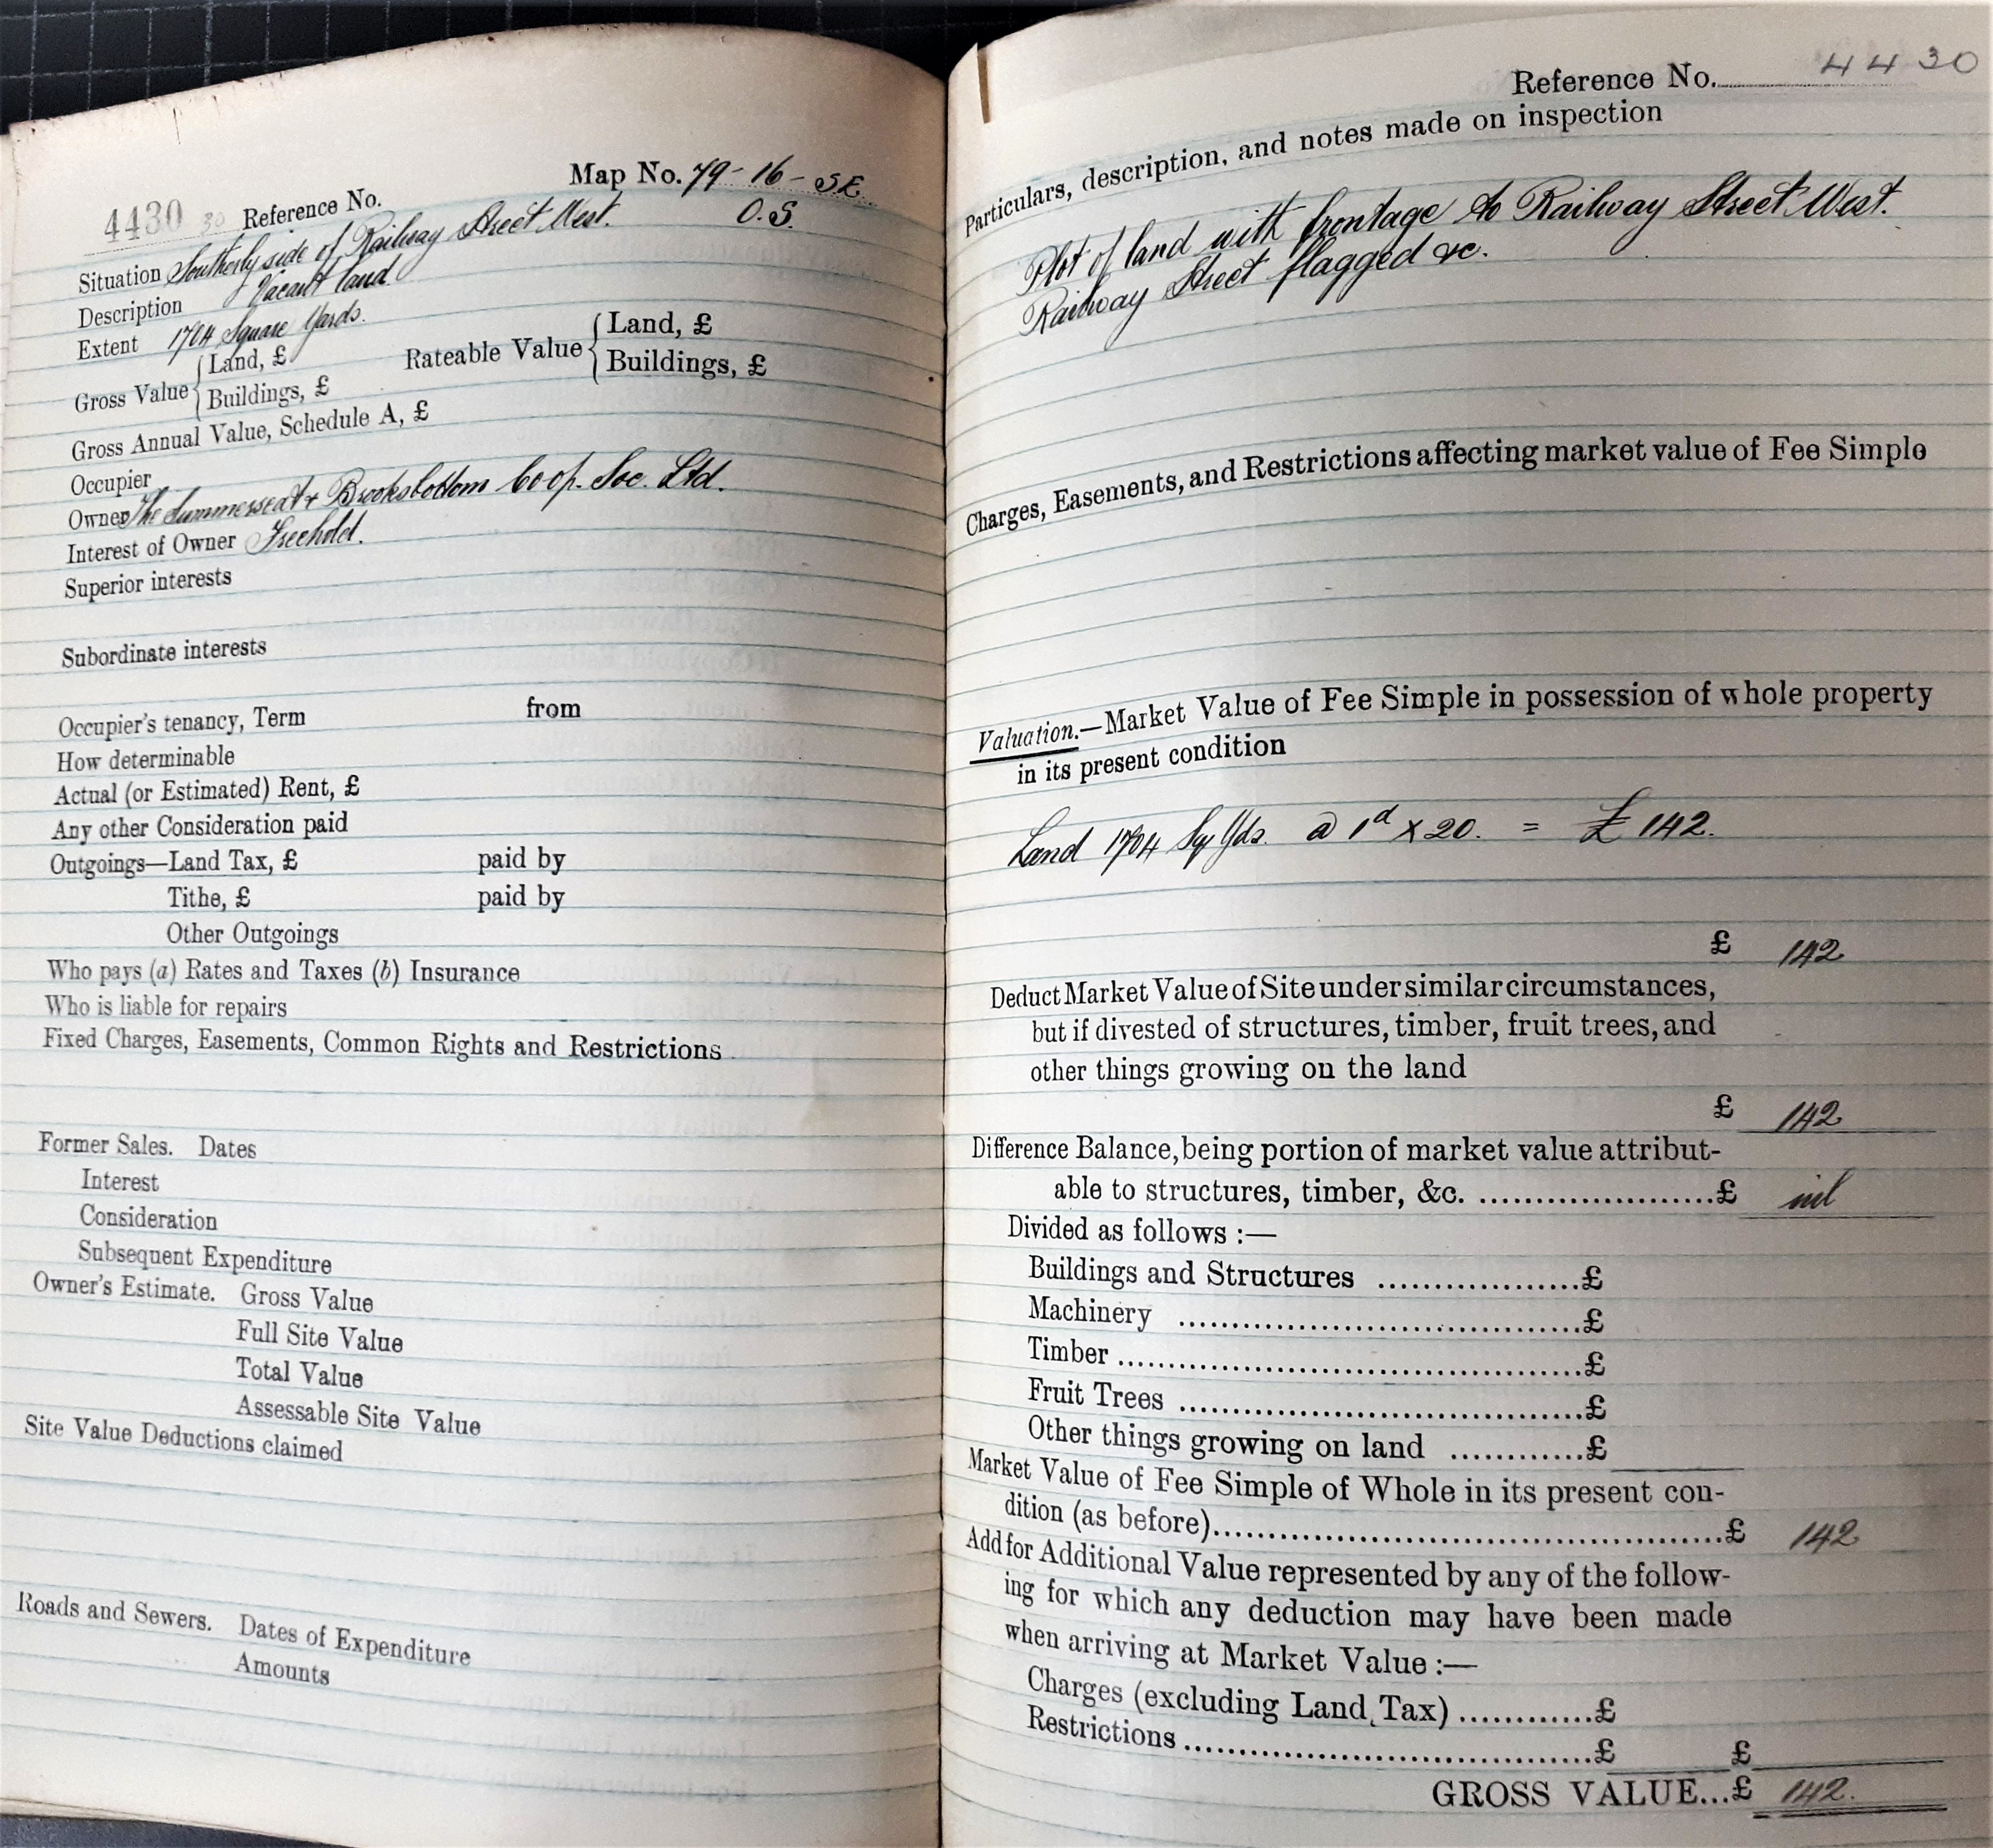 Map No. 79-16-SE
4430 30 Reference No. O.S.
Situation Southerly side of Railway Street West.
Description Vacant land
Extent 1704 Square Yards.
Gross Value { Land, £ Rateable Value { Land, £
Buildings, £ Buildings, £
Gross Annual Value, Schedule A, £
Occupier
Owner The Summerseat & Brooksbottom Co op. Soc. Ltd.
Interest of Owner Freehold.
Superior interests
Subordinate interests
Occupier's tenancy, Term from
How determinable
Actual (or Estimated) Rent, £
Any other Consideration paid
Outgoings—Land Tax, £ paid by
Tithe, £ paid by
Other Outgoings
Who pays (a) Rates and Taxes (b) Insurance
Who is liable for repairs
Fixed Charges, Easements, Common Rights and Restrictions
Former Sales. Dates
Interest
Consideration
Subsequent Expenditure
Owner's Estimate. Gross Value
Full Site Value
Total Value
Assessable Site Value
Site Value Deductions claimed
Roads and Sewers. Dates of Expenditure
Amounts
Reference No. 4430
Particulars, description, and notes made on inspection
Plot of land with frontage to Railway Street West.
Railway Street flagged &c.
Charges, Easements, and Restrictions affecting market value of Fee Simple
Valuation.—Market Value of Fee Simple in possession of whole property
in its present condition
Land 1704 Sq Yds. @ 1d x 20. = £142.
£ 142
Deduct Market Value of Site under similar circumstances,
but if divested of structures, timber, fruit trees, and
other things growing on the land
£ 142
Difference Balance, being portion of market value attribut-
able to structures, timber, &c. .....................£ nil
Divided as follows :—
Buildings and Structures ..................£
Machinery ....................................£
Timber ..........................................£
Fruit Trees ....................................£
Other things growing on land ............£
Market Value of Fee Simple of Whole in its present con-
dition (as before)..............................................£ 142
Add for Additional Value represented by any of the follow-
ing for which any deduction may have been made
when arriving at Market Value :—
Charges (excluding Land Tax) ............£
Restrictions .....................................£ £
GROSS VALUE...£ 142.